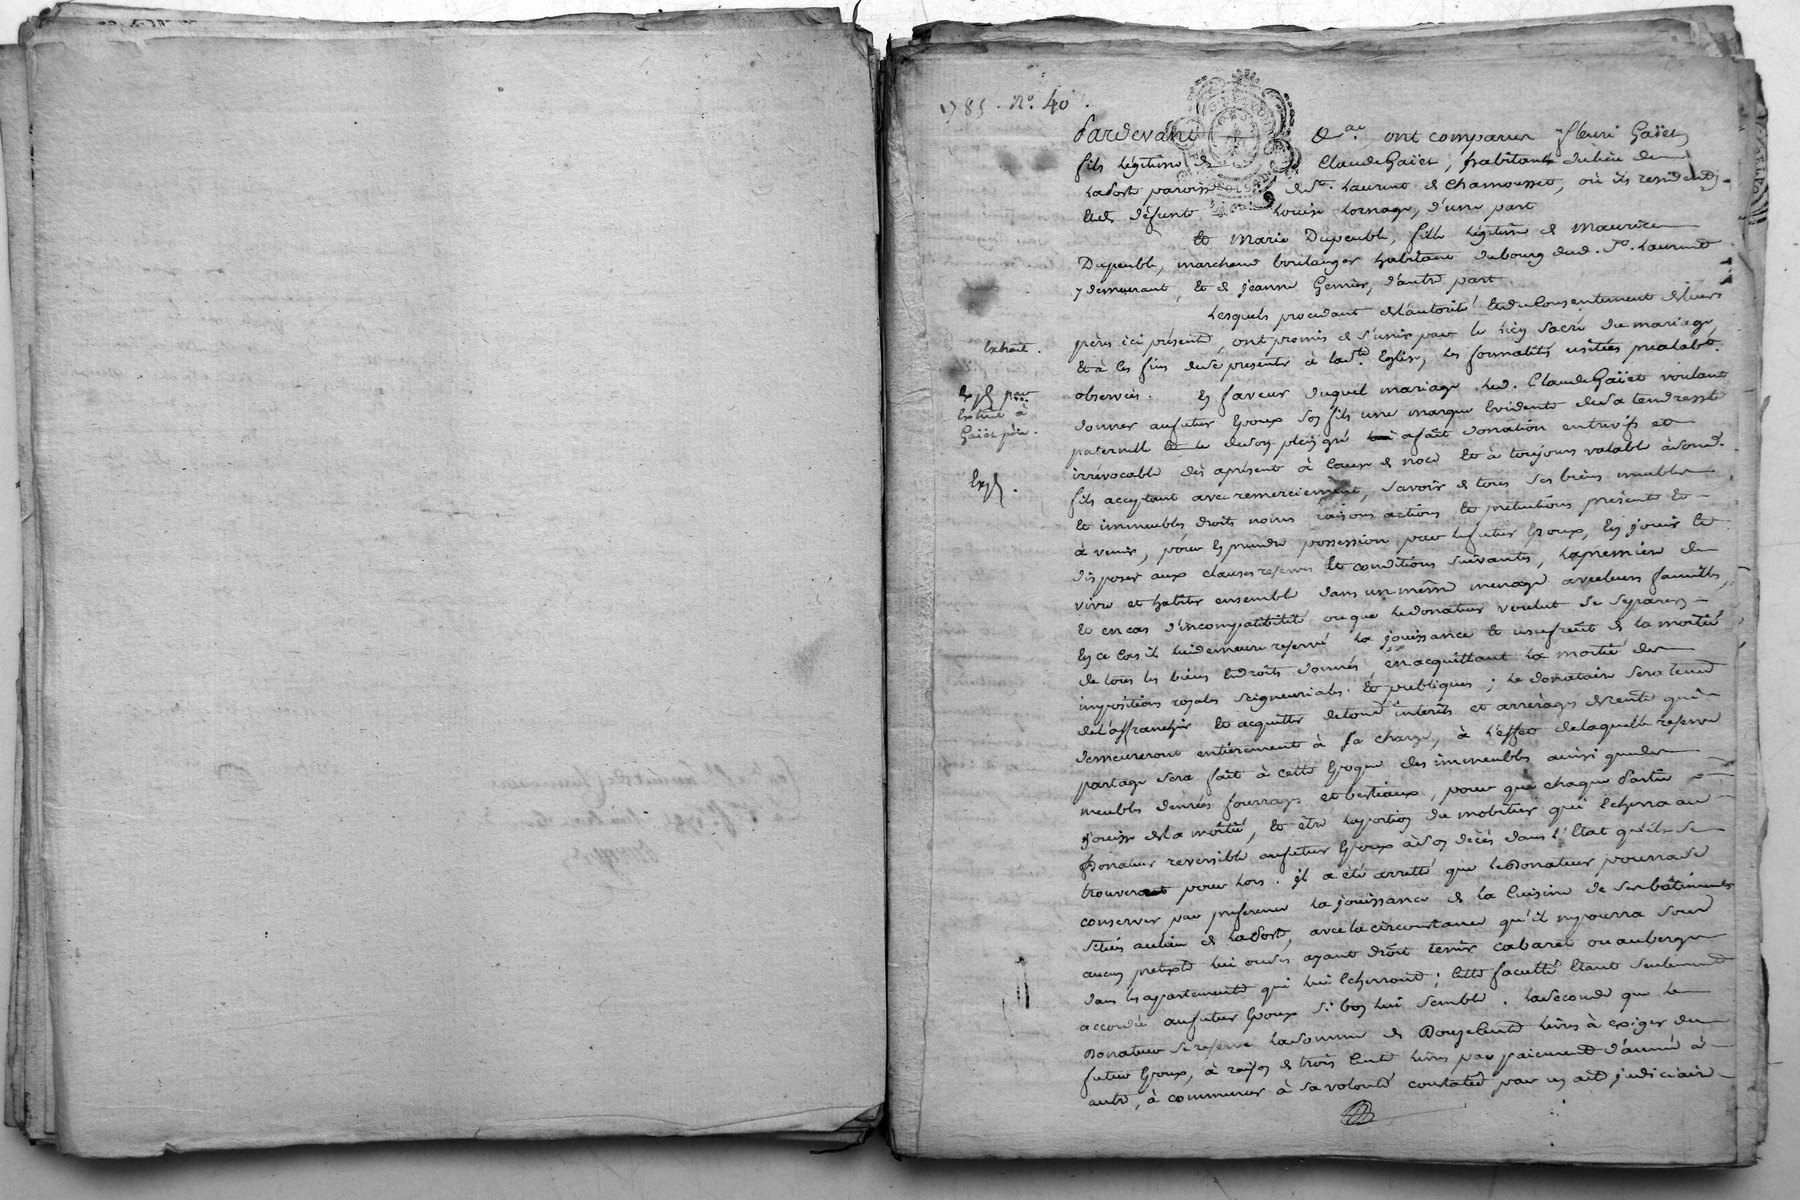 1785. No. 40.
Pardevant &a. ont comparu fleuri Gaïet
fils légitime de Claude Gaïet, habitants du lieu de
Laport paroisse de st. Laurent de Chamousset, où ils resident,
et de défunte Louise Lornage, d'une part
Et Marie Dupeuble, fille légitime de Maurice
Dupeuble, marchand boulanger habitant du bourg dud. St. Laurent
y demeurant, et de jeanne Gerrier, d'autre part.
Lesquels procedant de l'autorité et du Consentement de leurs
pères ici présents, ont promis de s'unir par le lien sacré du mariage,
Et à ces fins de se presenter à la ste. Eglise, les formalités usitées prealabt.
observées. En faveur duquel mariage led. Claude Gaïet voulant
donner au futur Epoux son fils une marque Evidente de sa tendresse
paternelle de son plein gré a fait donation entrevifs et
irrévocable dès aprésent à Cause de noce Et à toujours valable à sond.
fils acceptant avec remerciement, savoir de tous ses biens meubles
Et immeubles droits noms raisons actions Et prétentions présents Et
à venir, pour En prendre possession par le futur Epoux, En jouir Et
disposer aux clauses reserves Et conditions suivantes, la premiere de
vivre et habiter ensemble dans un même menage avec leurs familles,
Et en cas d'incompatibilité ou que le donateur voulut se separer,
En ce Cas il lui demeure reservé la jouissance Et usufruit de la moitié
de tous les biens Et droits donnés en acquittant la moitié des
impositions royales seigneuriales Et publiques; le donataire sera tenu
de l'affranchir Et acquitter de tous interêts et arrérages de rente qui
demeureront entièrement à sa charge, à l'effet de laquelle reserve
partage sera fait à cette Epoque des immeubles ainsi que des
meubles denrées fourrages et bestiaux, pour que chaque Partie
jouisse de la moitié, Et être la portion du mobilier qui Echerra au
Donateur reversible au futur Epoux à son décès dans l'Etat qu'ils se
trouveront pour lors. il a été arretté que le Donateur pourra se
conserver par preference la jouissance de la Cuisine de ses bâtiments
situés au lieu de Laport, avec la circonstance qu'il ne pourra sous
aucun pretexte lui ou ses ayant droit tenir cabaret ou auberge
dans les appartements qui lui Echerront; cette faculté Etant seulement
accordée au futur Epoux si bon lui semble. La seconde que le
Donateur se reserve la somme de Douze Cents livres à exiger du
futur Epoux, à raison de trois Cents livres par paiement d'année à
autre, à commencer à sa volonté constatée par un acte judiciaire
Extrait.
Expé. par
Extrait à
Gaïet père.
Expé.